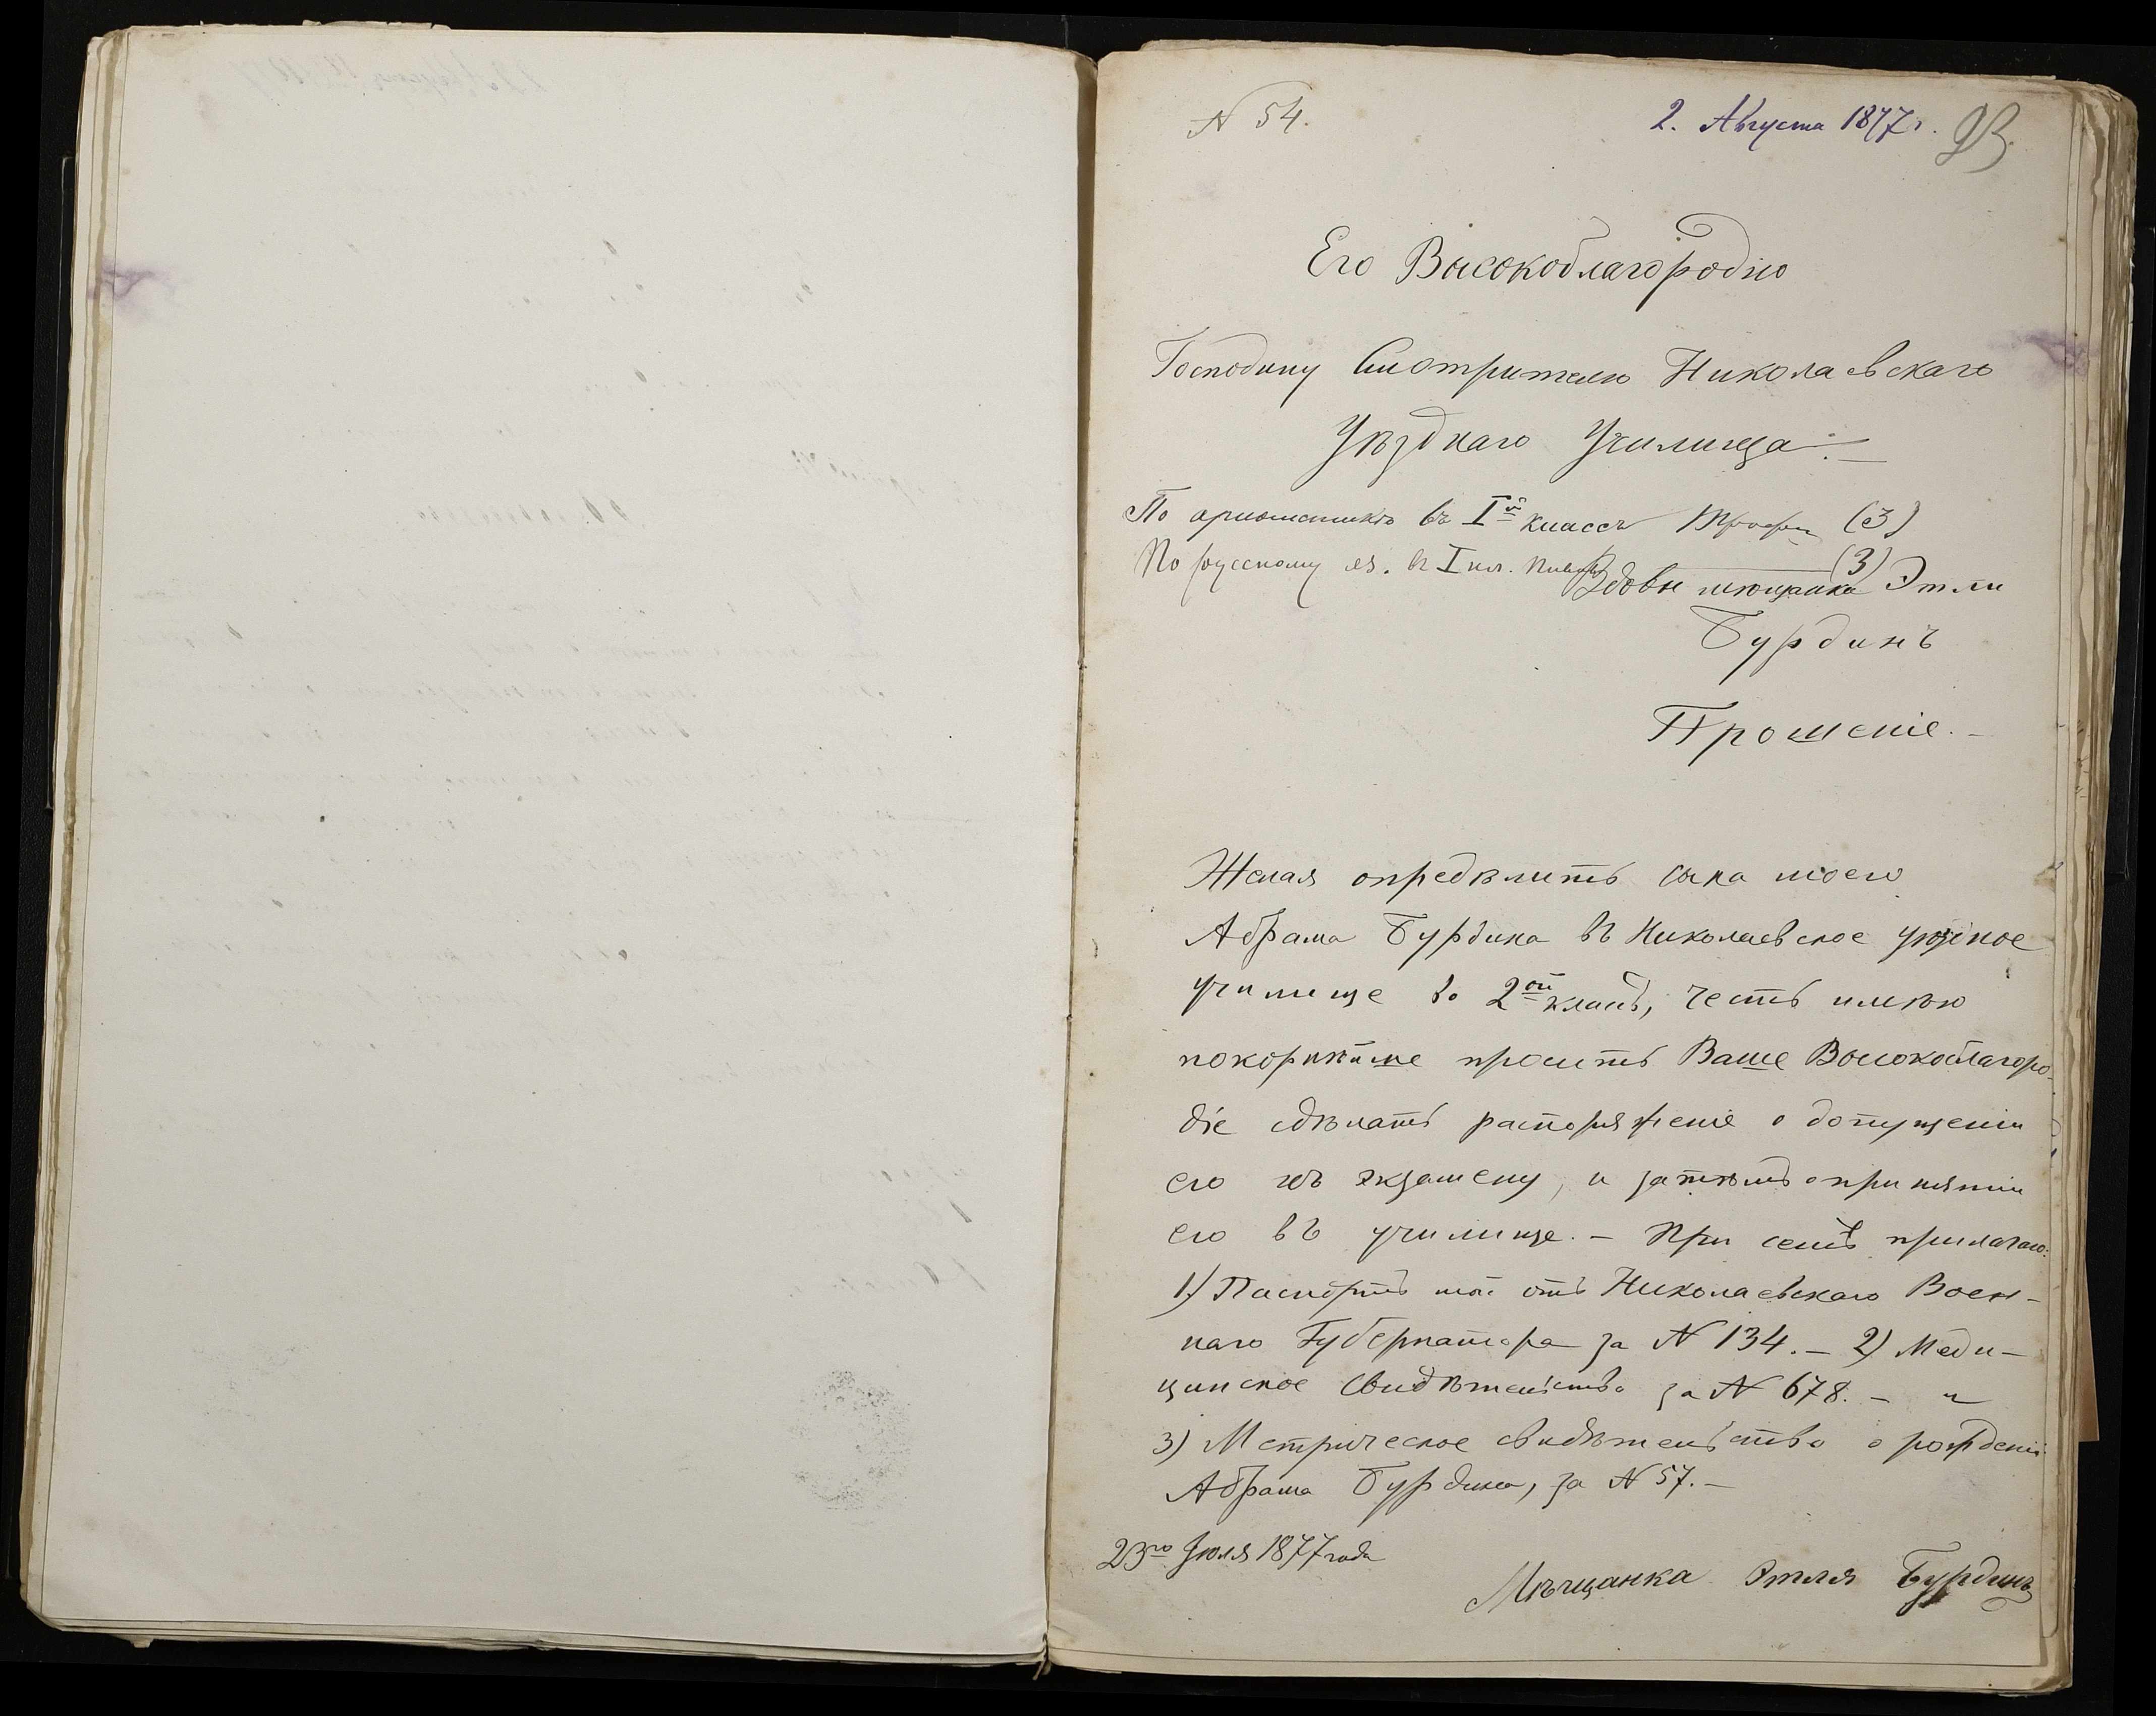 N 54.
2. Августа 1877 г. 93.
Его Высокоблагородію
Господину Смотрителю Николаевскаго
Уѣзднаго Училища.—
По ариѳметикѣ въ Iй классъ (3)
По русскому яз. въ I кл. (3)
Вдовы мѣщанки Этли
Бурдинъ
Прошеніе.—
Желая опредѣлить сына моего
Абрама Бурдина въ Николаевское уѣздное
училище во 2ой классъ, честь имѣю
покорнѣйше просить Ваше Высокоблагоро-
діе сдѣлать распоряженіе о допущеніи
его къ экзамену, и затѣмъ о принятіи
его въ училище.— При семъ прилагаю:
1) Паспортъ мой отъ Николаевскаго Воен-
наго Губернатора за N 134.— 2) Меди-
цинское Свидѣтельство за N 678.— и
3) Метрическое свидѣтельство о рожденіи
Абрама Бурдина, за N 57.—
23го Іюля 1877 года
Мѣщанка Этля Бурдинъ